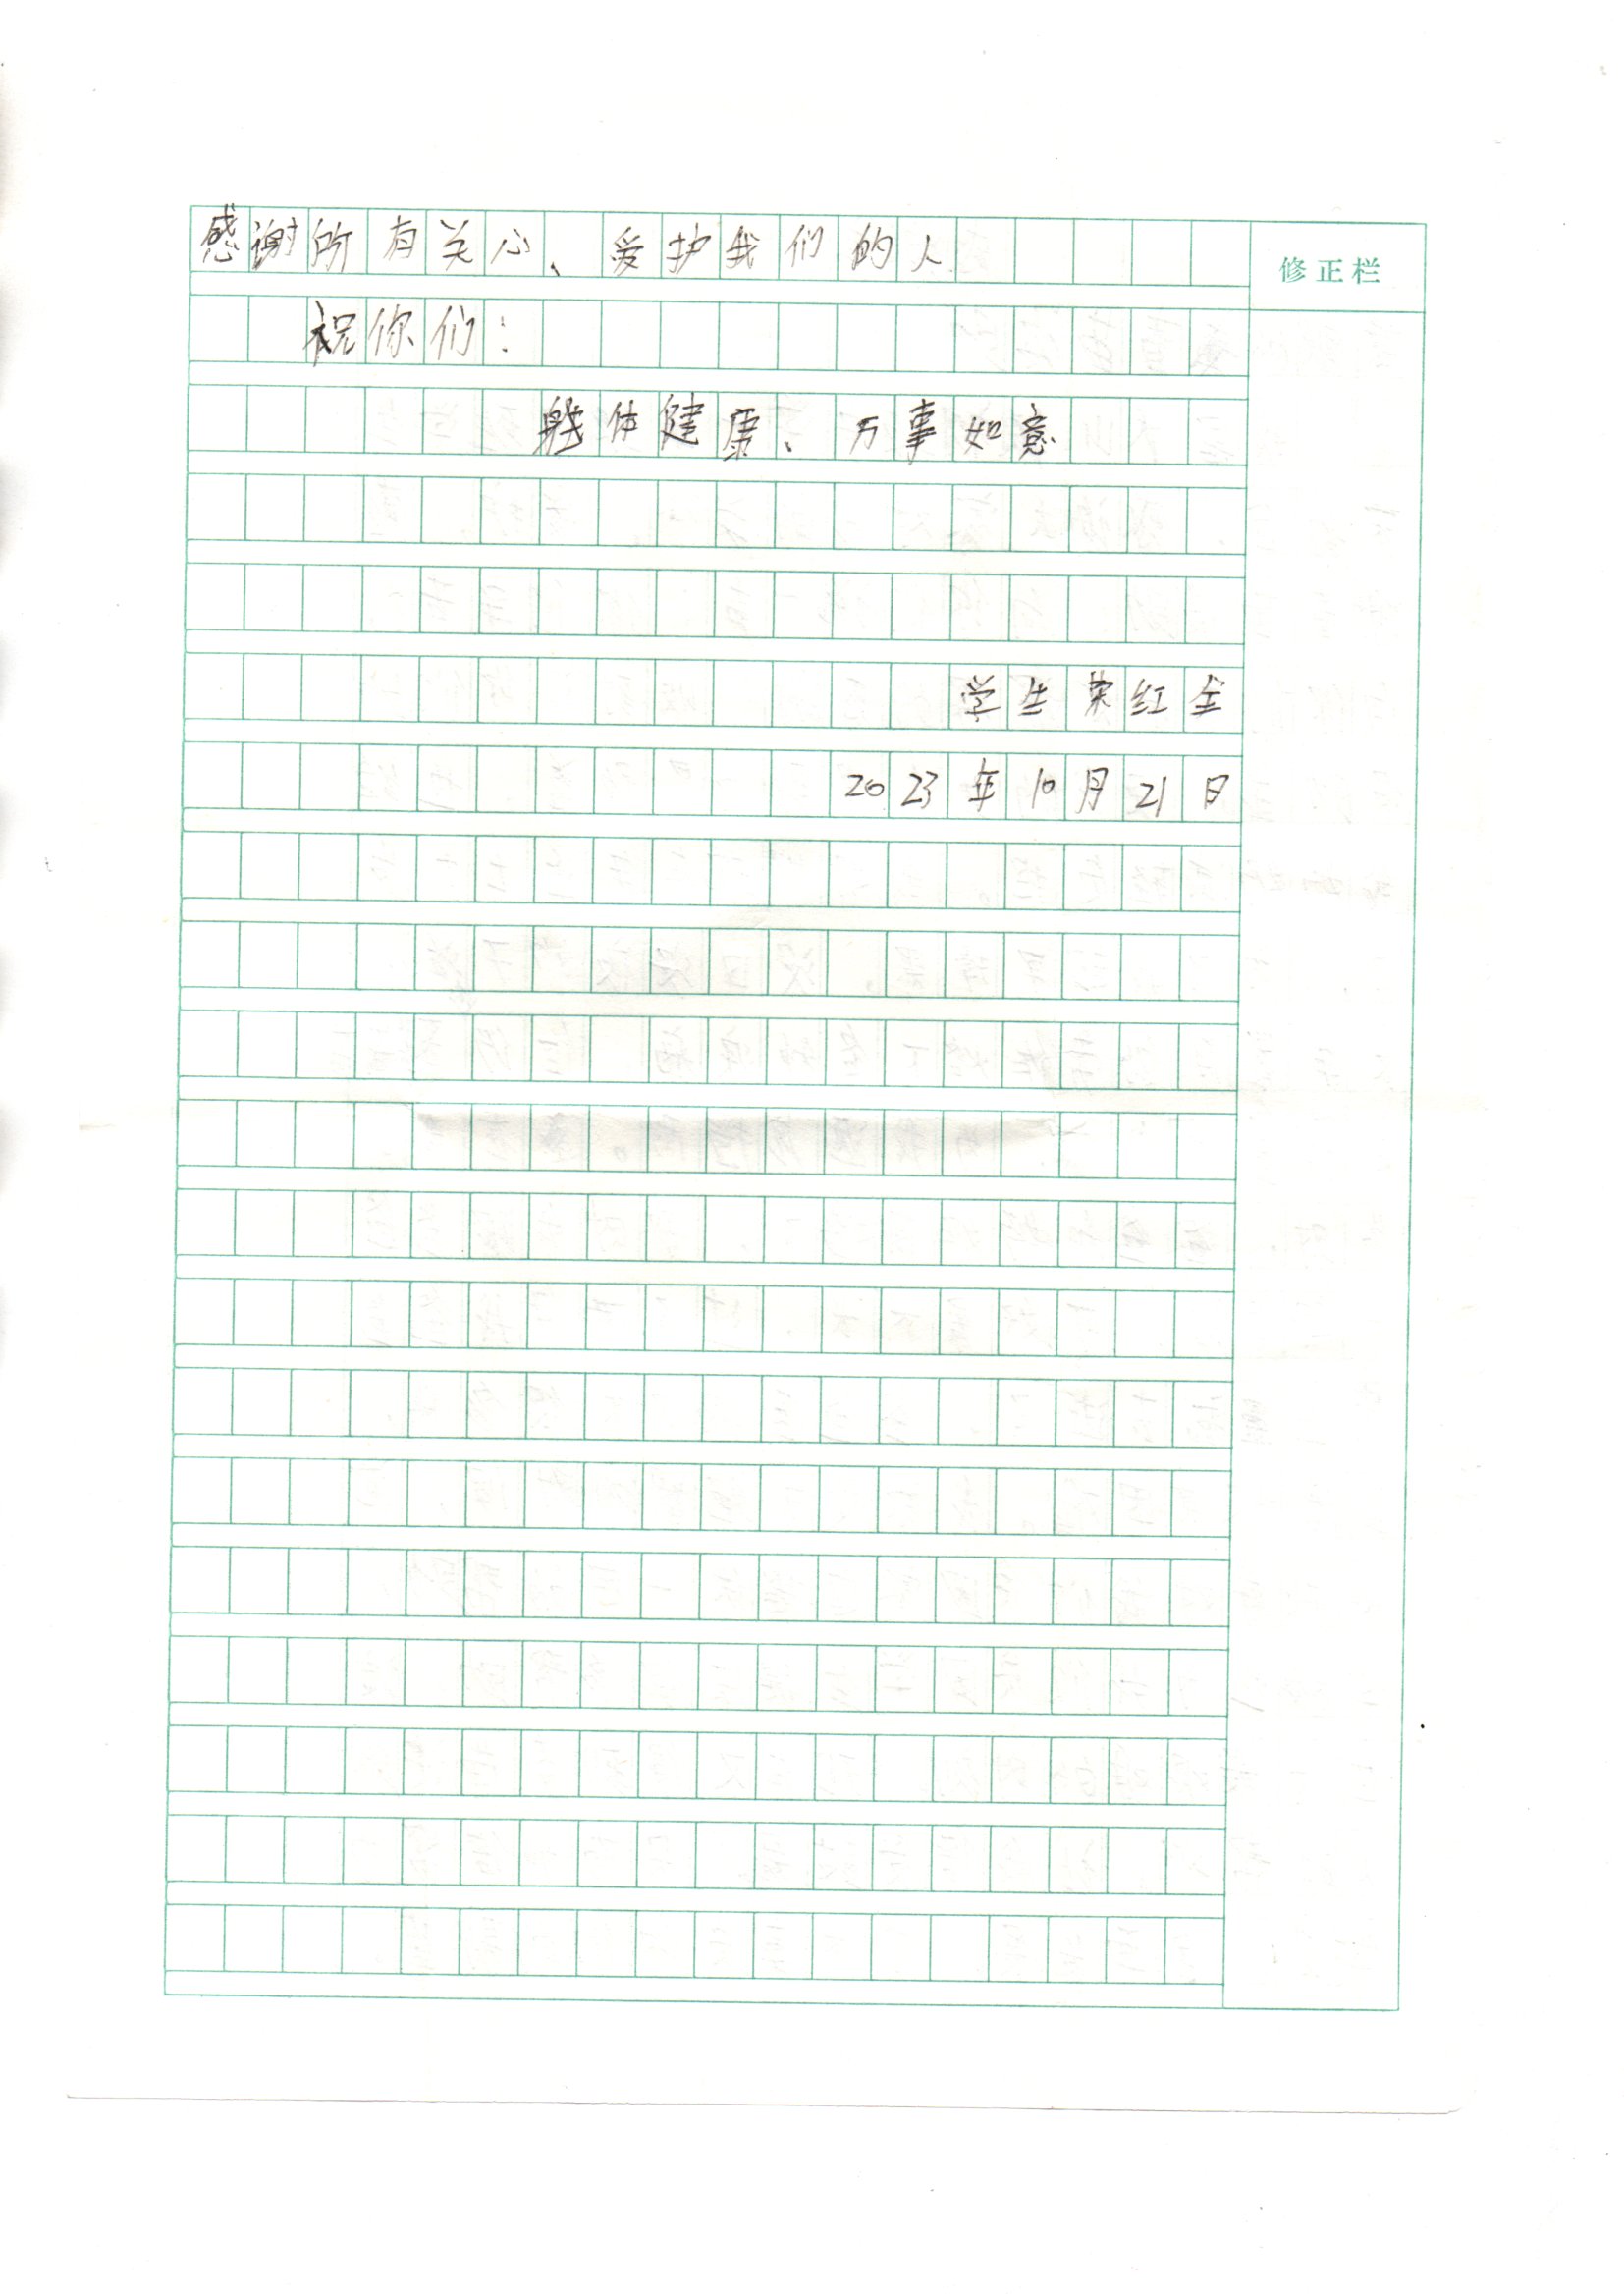 感谢所有关心、爱护我们的人
修正栏
祝你们:
身体健康、万事如意
学生荣红全
2023年10月21日